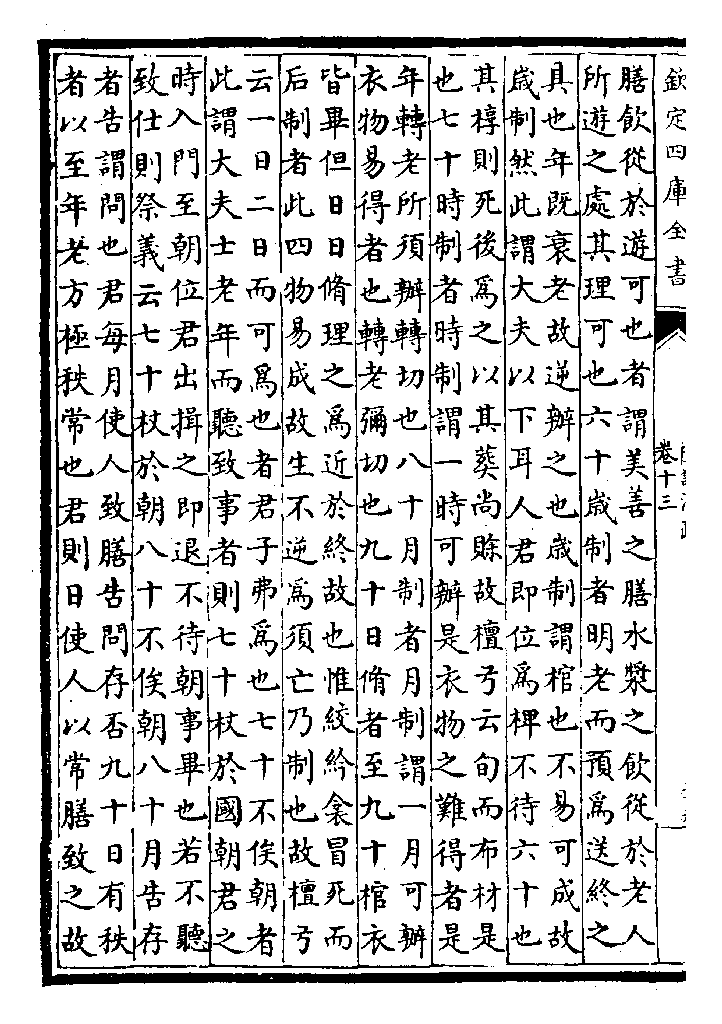 欽定四庫全書
卷十三
膳飲從於遊可也者謂美善之膳水漿之飲從於老人
所遊之處其理可也六十歳制者明老而預爲送終之
具也年既衰老故逆辦之也歳制謂棺也不易可成故
歳制然此謂大夫以下耳人君即位爲椑不待六十也
其椁則死後爲之以其葬尚賖故檀弓云旬而布材是
也七十時制者時制謂一時可辦是衣物之難得者是
年轉老所須辦轉切也八十月制者月制謂一月可辦
衣物易得者也轉老彌切也九十日脩者至九十棺衣
皆畢但日日脩理之爲近於終故也惟絞紟衾冒死而
后制者此四物易成故生不逆爲須亡乃制也故檀弓
云一日二日而可爲也者君子弗爲也七十不俟朝者
此謂大夫士老年而聽致事者則七十杖於國朝君之
時入門至朝位君出揖之即退不待朝事畢也若不聽
致仕則祭義云七十杖於朝八十不俟朝八十月告存
者告謂問也君每月使人致膳告問存否九十日有秩
者以至年老方極秩常也君則日使人以常膳致之故